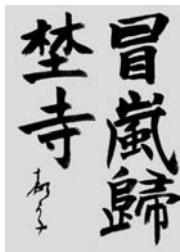 冒嵐歸
埜寺